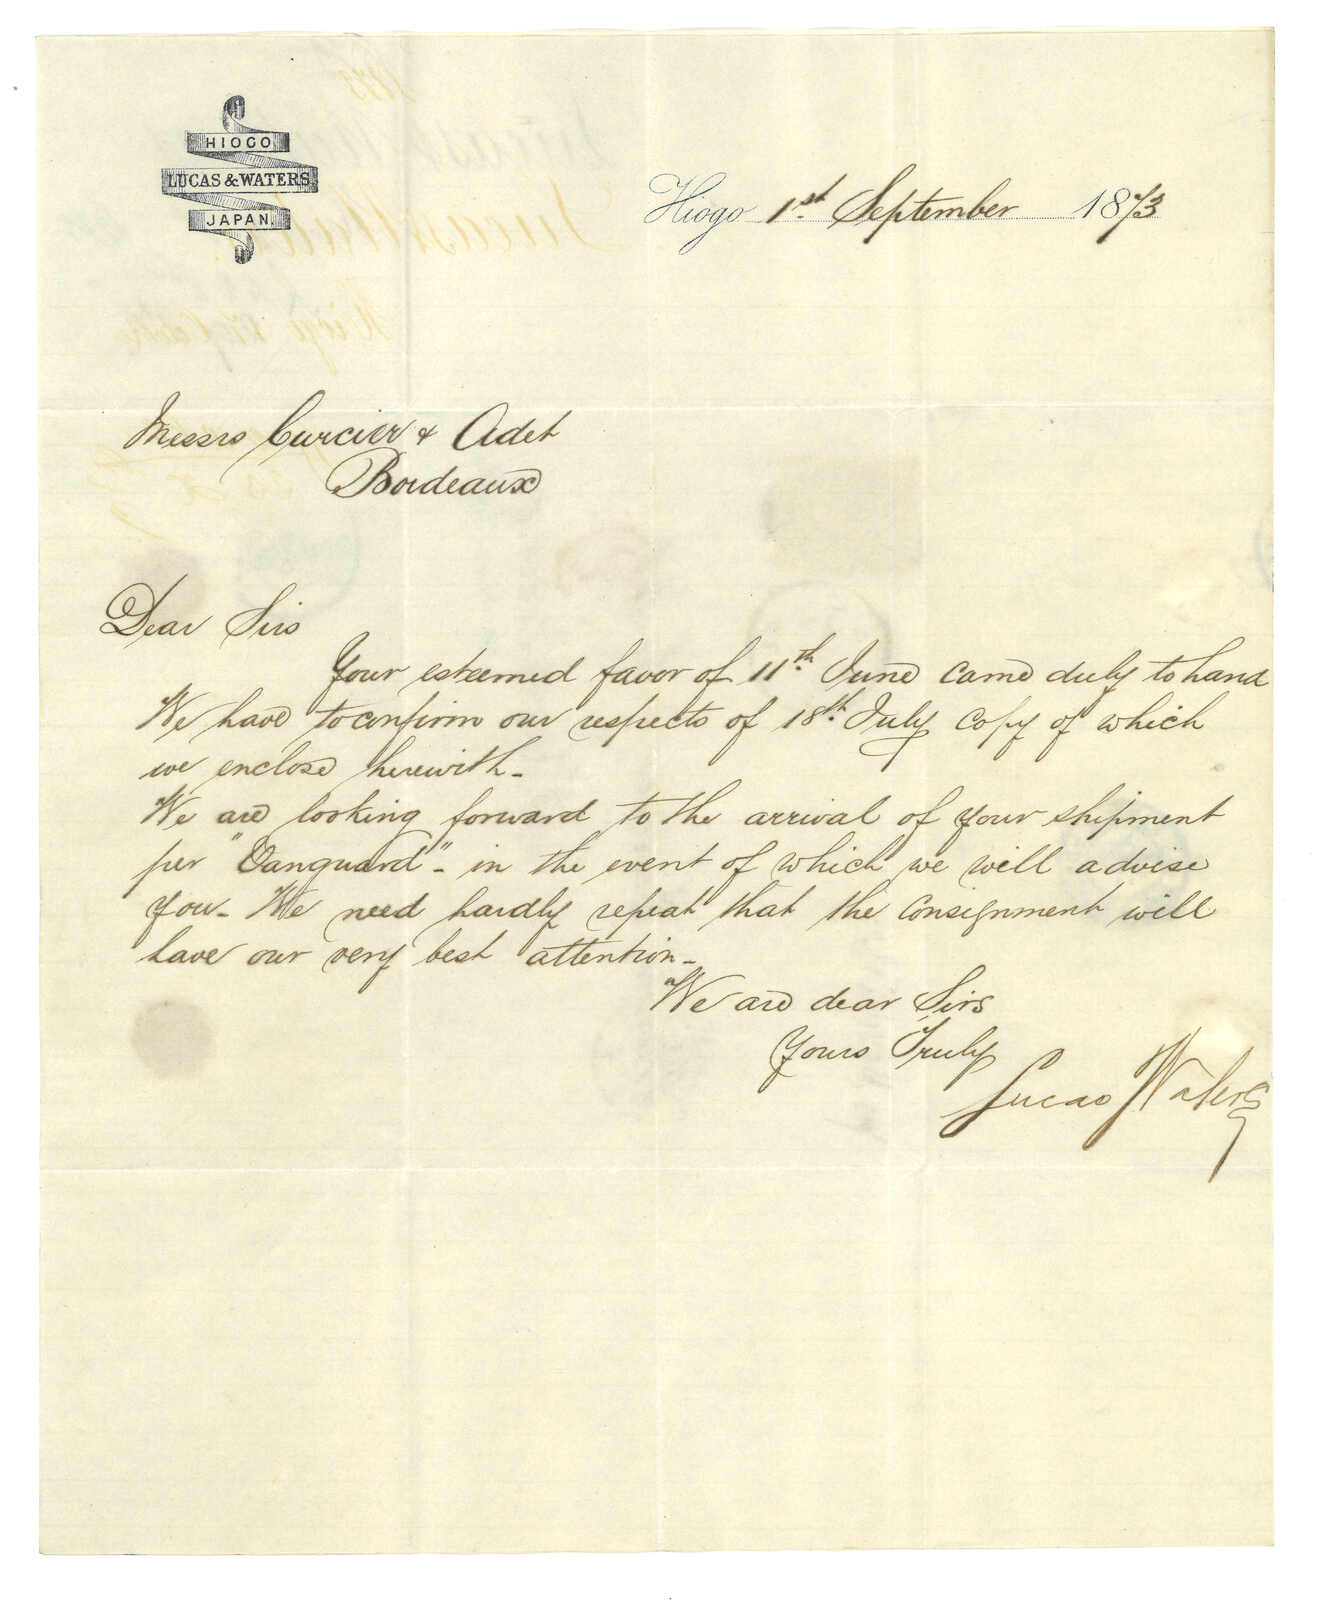 HIOGO
LUCAS & WATERS
JAPAN
Hiogo 1st September 1873
Messrs Curcier & Adet
Bordeaux
Dear Sirs
Your esteemed favor of 11th June came duly to hand
We have to confirm our respects of 18th July copy of which
we enclose herewith -
We are looking forward to the arrival of your shipment
per "Vanguard" - in the event of which we will advise
you - We need hardly repeat that the consignment will
have our very best attention -
We are dear Sirs
Yours Truly
Lucas Waters